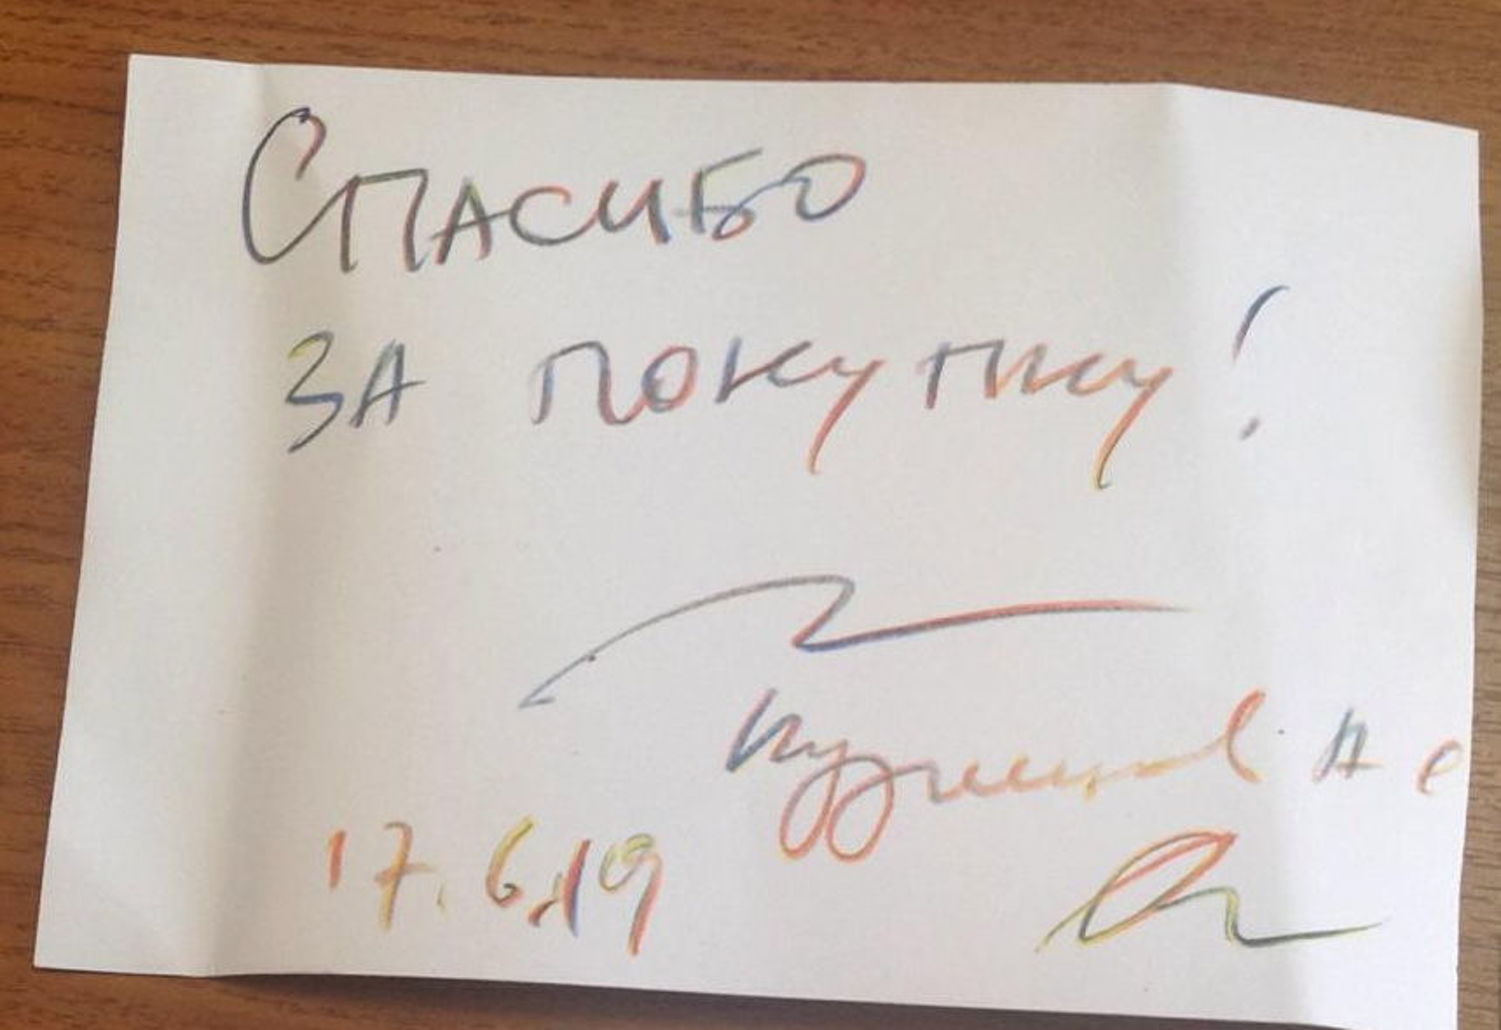 Спасибо
за покупку!
Кузнецов А С
17.6.19